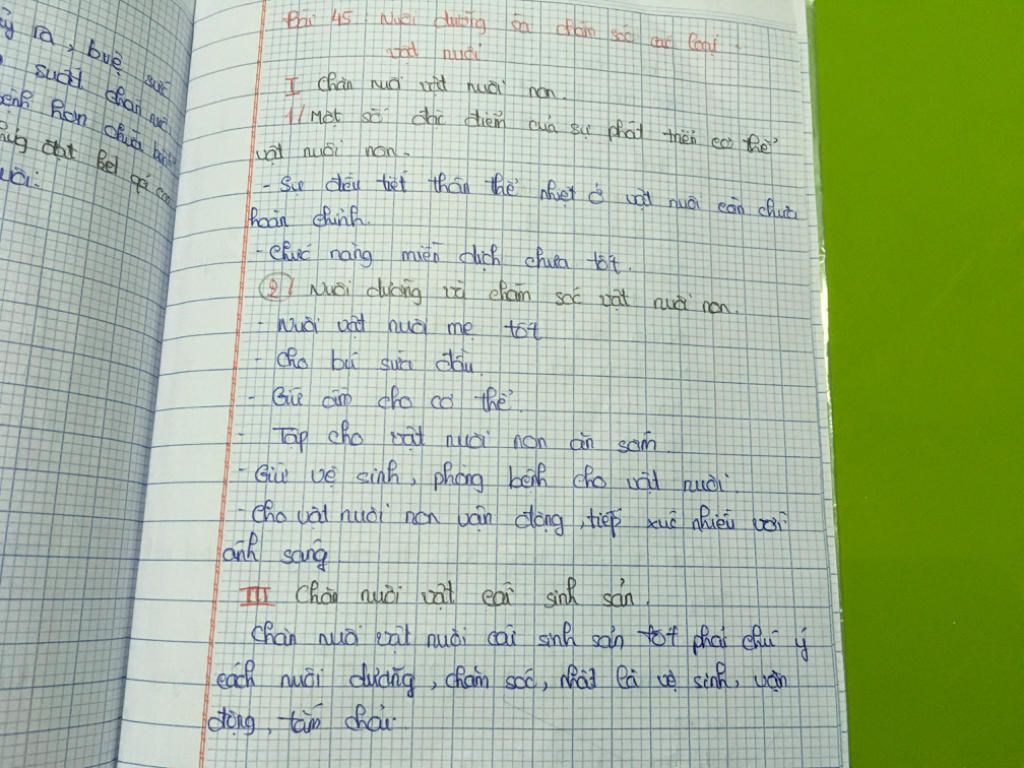 ẩy ra, buệ sức
suất chăn nuôi
bệnh hơn chữa bệnh
Bài 45 Nuôi dưỡng và chăm sóc các loại
vật nuôi
I Chăn nuôi vật nuôi non.
1/ Một số đặc điểm của sự phát triển cơ thể
vật nuôi non.
- Sự đều tiết thân thể nhiệt ở vật nuôi còn chưa
hoàn chỉnh.
- Chức năng miễn dịch chưa tốt.
2/ Nuôi dưỡng và chăm sóc vật nuôi non.
- Nuôi vật nuôi mẹ tốt
- Cho bú sữa đầu.
- Giữ ấm cho cơ thể.
- Tập cho vật nuôi non ăn sớm.
- Giữ vệ sinh, phòng bệnh cho vật nuôi.
- Cho vật nuôi non vận động, tiếp xúc nhiều với
ánh sáng
III Chăn nuôi vật cái sinh sản.
Chăn nuôi vật nuôi cái sinh sản tốt phải chú ý
cách nuôi dưỡng, chăm sóc, nhất là vệ sinh, vận
động, tắm chải.